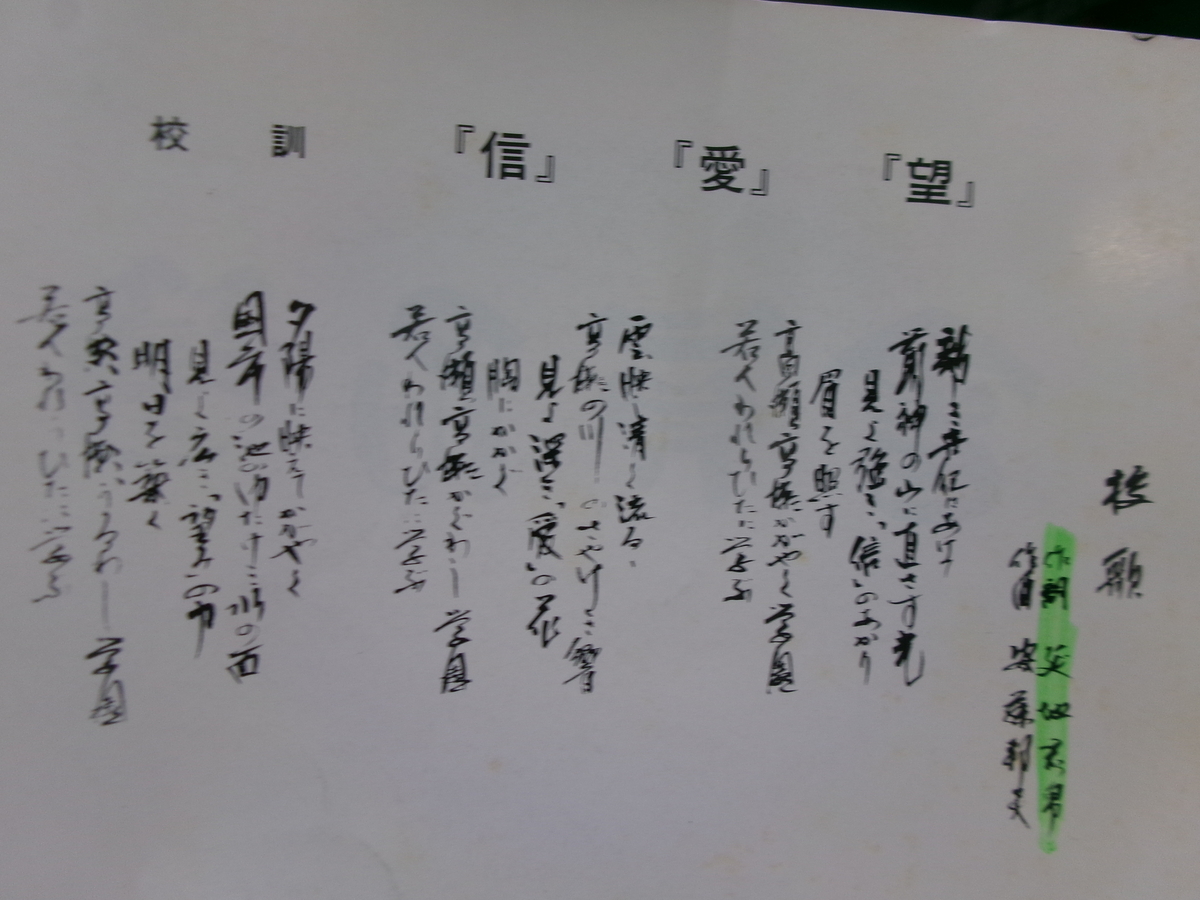 校訓
『信』
『愛』
『望』
校歌
作詞
作曲 安藤邦夫
新しき
前神の山に直さす光
見よ強き「信」のあかり
眉を照す
高瀬高校かがやく学園
若人われらひたに学ぶ
雲映し清く流るる
高瀬の川のさやけき響
見よ深き「愛」の花
胸に
高瀬高校かぐわし学園
若人われらひたに学ぶ
夕陽に映えてかがやく
国市の池のゆたけき水の面
見よ広き「望み」の力
明日を築く
高瀬高校うるわし学園
若人われらひたに学ぶ